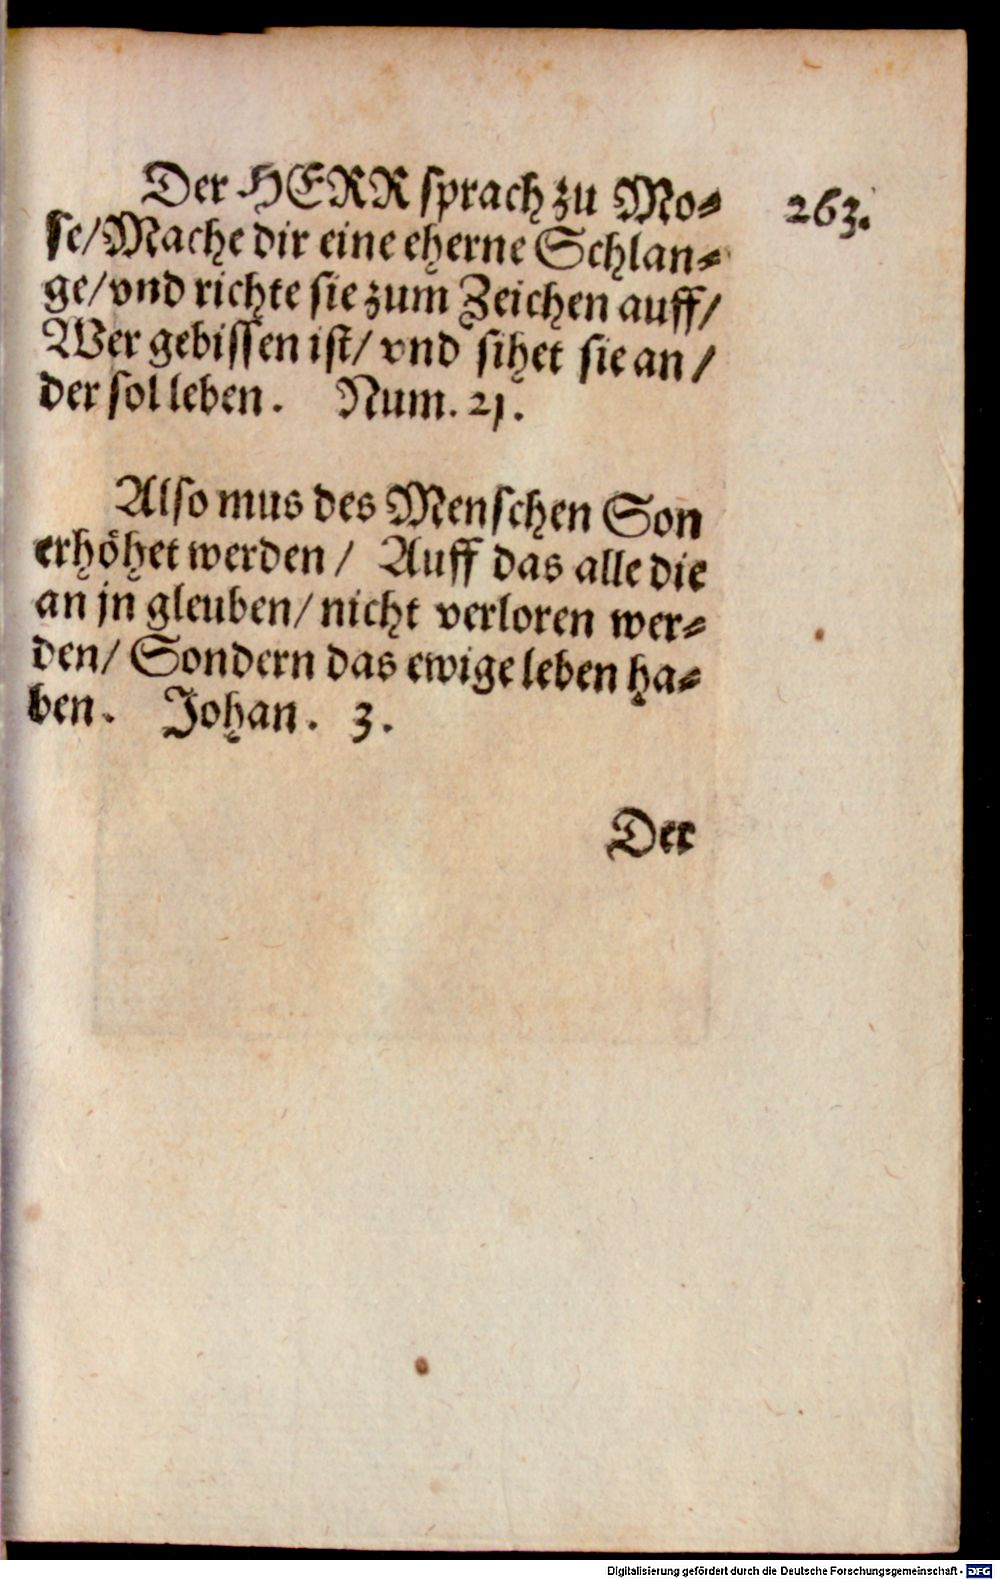 Der HERR sprach zu Mo⸗ 263.
se/Mache dir eine eherne Schlan⸗
ge/vnd richte sie zum Zeichen auff/
Wer gebissen ist/ vnd sihet sie an/
der sol leben. Num. 21.
Also mus des Menschen Son
erhöhet werden/ Auff das alle die
an jn gleuben/ nicht verloren wer⸗
den/ Sondern das ewige leben ha⸗
ben. Johan. 3.
Der
Digitalisierung gefördert durch die Deutsche Forschungsgemeinschaft - DFG